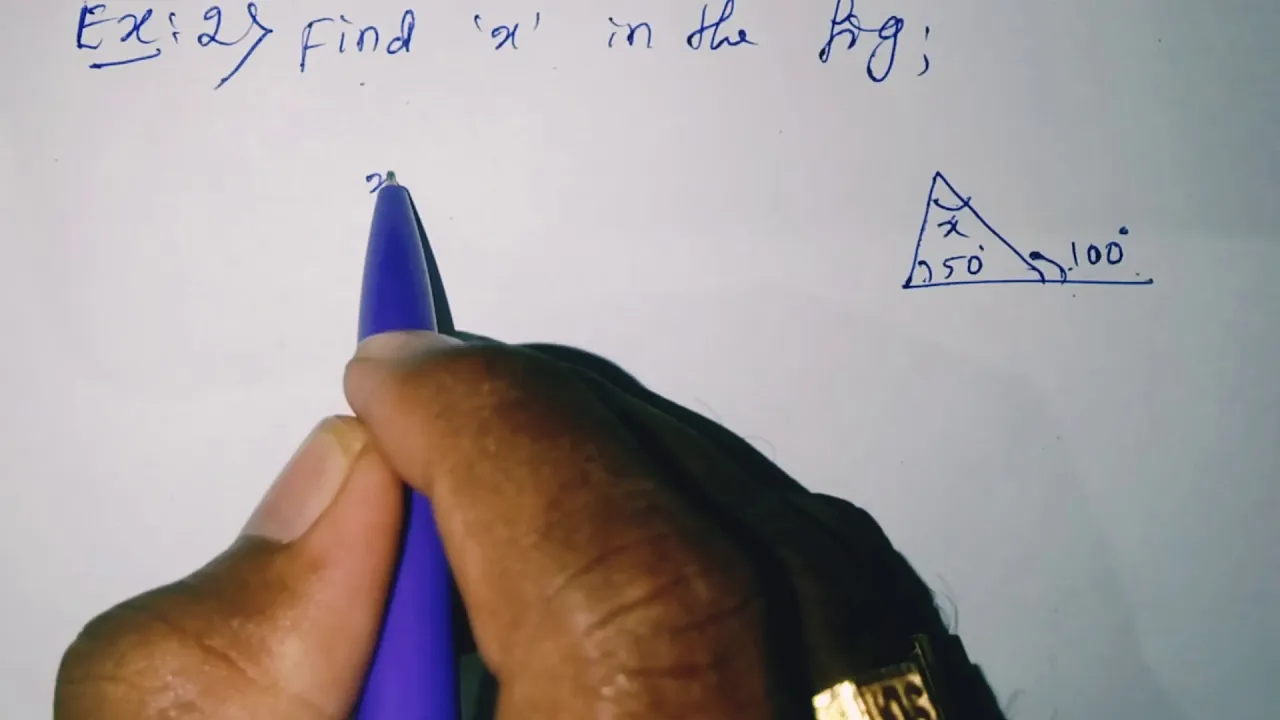 Ex: 2) Find 'x' in the fig;
x
x
50°
100°